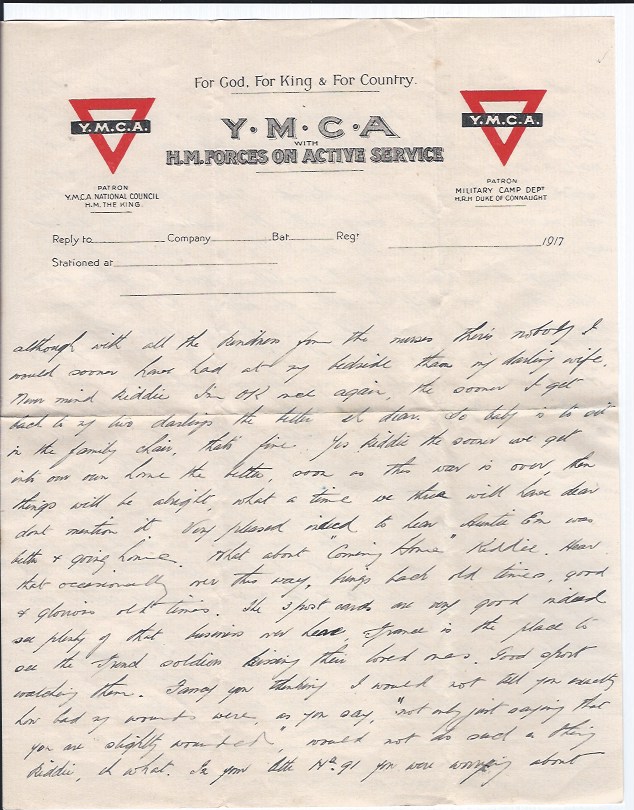 For God, For King & For Country.
Y.M.C.A.
Y·M·C·A
WITH
H.M. FORCES ON ACTIVE SERVICE
Y.M.C.A.
PATRON
Y.M.C.A. NATIONAL COUNCIL
H.M. THE KING.
PATRON
MILITARY CAMP DEPT
H.R.H DUKE OF CONNAUGHT
Reply to Company Bat Regt 1917
Stationed at
although with all the kindness from the nurses there's nobody I
would sooner have had at my bedside than my darling wife.
Never mind Kiddie I'm OK now again, the sooner I get
back to my two darlings the better it dear. So baby is to sit
in the family chair, that's fine. Yes Kiddie the sooner we get
into our own home the better, soon as this war is over, then
things will be alright, what a time we three will have dear
dont mention it. Very pleased indeed to hear Auntie Em was
better & going home. What about "Coming Home" Kiddie. Hear
that occasionally over this way, brings back old times, good
& glorious old times. The 3 post cards are very good indeed
see plenty of that business over here, France is the place to
see the French soldiers kissing their loved ones. Good sport
watching them. Fancy you thinking I would not tell you exactly
how bad my wounds were, as you say, "not only just saying that
you are slightly wounded", would not do such a thing
Kiddie, eh what. In your letter No 91 you were worrying about